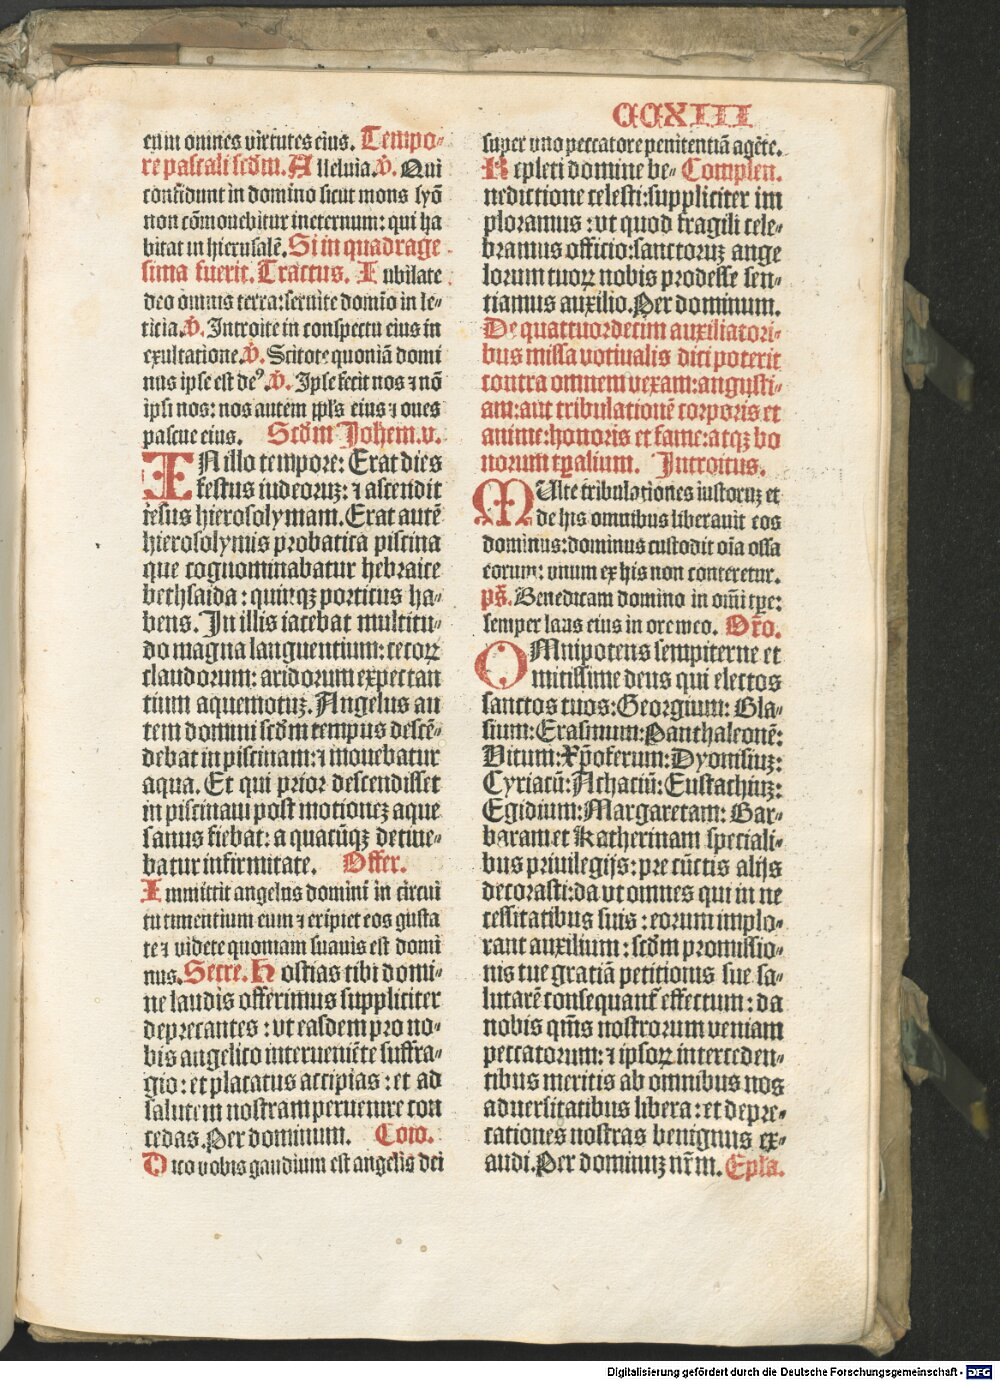 CCXIII
eum omnes virtutes eius. Tempo-
re pascali scdm. Alleluia. V. Qui
confidunt in domino sicut mons syō
non cōmouebitur ineternum: qui ha
bitat in hierusalē. Si in quadrage
sima fuerit. Tractus. Iubilate
deo omnis terra: seruite domīo in le-
ticia. V. Introite in conspectu eius in
exultatione. V. Scitote quoniā domi
nus ipse est deꝰ. V. Ipse fecit nos ⁊ nō
ipsi nos: nos autem ppl̄s eius ⁊ oues
pascue eius. Scdm Johem. v.
IN illo tempore: Erat dies
festus iudeoruꝫ: ⁊ ascendit
iesus hierosolymam. Erat autē
hierosolymis probatica piscina
que cognominabatur hebraice
bethsaida: quinqꝫ porticus ha-
bens. In illis iacebat multitu-
do magna languentium: cecoꝝ
claudorum: aridorum expectan
tium aque motuꝫ. Angelus au
tem domini scdm tempus descē-
debat in piscinam: ⁊ mouebatur
aqua. Et qui prior descendisset
in piscinam post motioneꝫ aque
sanus fiebat: a quacūqꝫ detine-
batur infirmitate. Offer.
Immittit angelus domini in circui
tu timentium eum ⁊ eripiet eos gusta
te ⁊ videte quoniam suauis est domi
nus. Secre. Hostias tibi domi-
ne laudis offerimus suppliciter
deprecantes: vt easdem pro no-
bis angelico interueniēte suffra-
gio: et placatus accipias: et ad
salutem nostram peruenire con
cedas. Per dominum. Com̄o.
Dico vobis gaudium est angelis dei
super vno peccatore penitentiā agēte.
Repleti domine be- Complen.
nedictione celesti: suppliciter im
ploramus: vt quod fragili cele-
bramus officio: sanctoruꝫ ange
lorum tuoꝝ nobis prodesse sen-
tiamus auxilio. Per dominum.
De quattuordecim auxiliatori-
bus missa votiualis dici poterit
contra omnem vexam: angusti-
am: aut tribulationē corporis et
anime: honoris et fame: atqꝫ bo
norum tp̄alium. Introitus.
MUlte tribulationes iustoruꝫ et
de his omnibus liberauit eos
dominus: dominus custodit oīa ossa
eorum: vnum ex his non conteretur.
ps̄. Benedicam domino in om̄i tp̄e:
semper laus eius in ore meo. Or̄o.
OMnipotens sempiterne et
mitissime deus qui electos
sanctos tuos: Georgium: Bla-
sium: Erasmum: Panthaleonē:
Vitum: Xp̄oferum: Dyonisiuꝫ:
Cyriacū: Achaciū: Eustachiuꝫ:
Egidium: Margaretam: Bar-
baram et Katherinam speciali-
bus priuilegijs: pre cūctis alijs
decorasti: da vt omnes qui in ne
cessitatibus suis: eorum implo-
rant auxilium: scdm promissio-
nis tue gratiā petitionis sue sa-
lutarē consequant̄ effectum: da
nobis qm̄s nostrorum veniam
peccatorum: ⁊ ipsoꝝ interceden-
tibus meritis ab omnibus nos
aduersitatibus libera: et depre-
cationes nostras benignus ex-
audi. Per dominuꝫ nr̄m. Epl̄a.
Digitalisierung gefördert durch die Deutsche Forschungsgemeinschaft - DFG